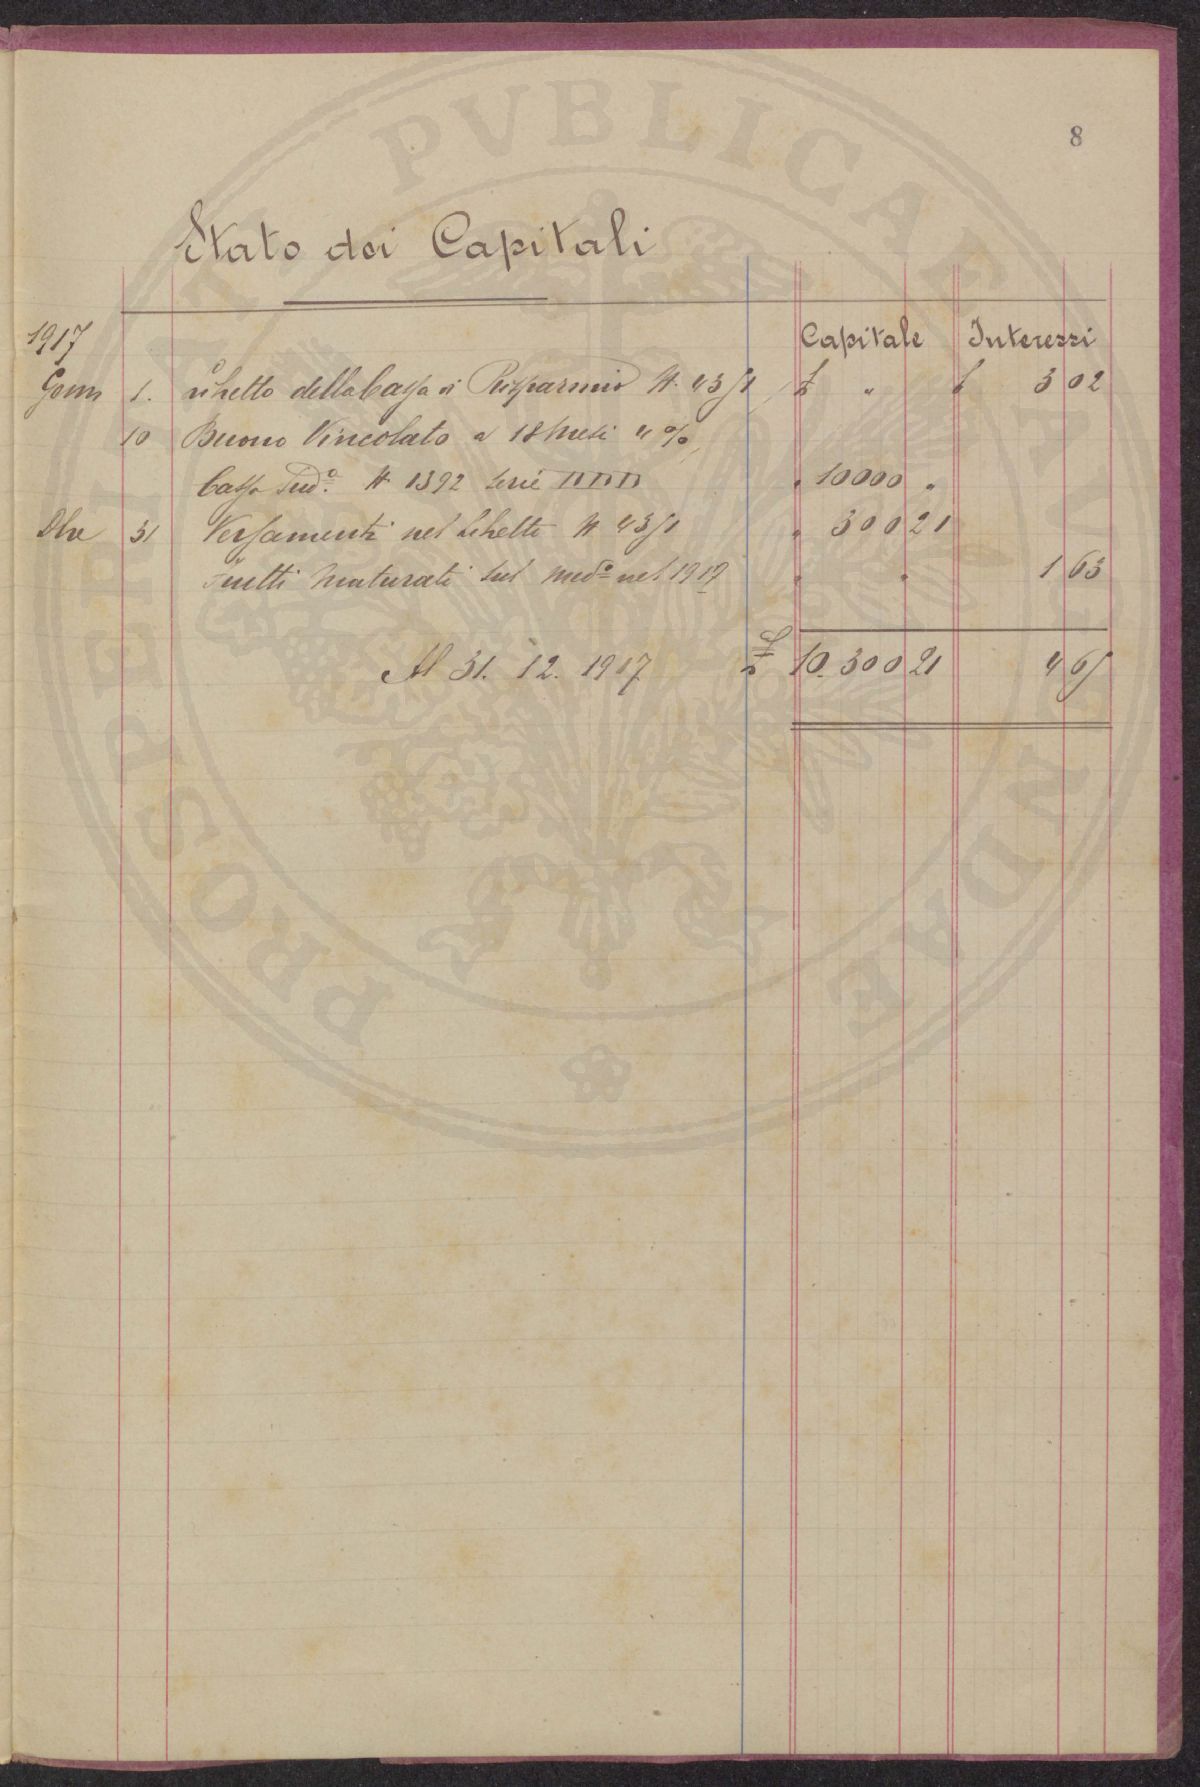 8
Stato dei Capitali
1917 Capitale Interessi
Genn 1. Libretto della Cassa di Risparmio N. 4351 £ " £ 3 02
10 Buono Vincolato a 18 Mesi 4 %
Cassa Sud.ª N. 1392 Serie " 10000 "
Dbre 31 Versamenti nel Libretto N 4351 " 300 21
Frutti maturati sul med.º nel 1917 " " 1 63
Al 31. 12. 1917 £ 10.300 21 4 65
PROSPERITATI PVBLICAE AVGENDAE